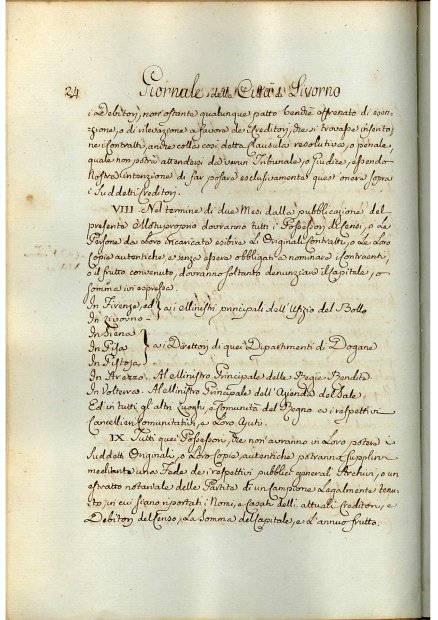 24 Giornale della Città di Livorno
i Debitori, non ostante qualunque patto benche offrenato di esen-
zione, o di rilevazione a favore de Creditori, che si trovasse inserito
ne i Contratti, anche colla così detta Clausula resolutiva, o penale,
quale non potrà attendersi da verun Tribunale, o Giudice, essendo
Nostra Intenzione di far posare esclusivamente quest' onere sopra
i Suddetti Creditori.
VIII Nel termine di due Mesi dalla pubblicazione del
presente Motuproprio dovranno tutti i Possessori di Censi, o Le
Persone da Loro Incaricate esibire Li Originali Contratti, o Le Loro
Copie autentiche, e senza essere obbligati a nominare i Contraenti,
o il frutto convenuto, dovranno soltanto denunziare il Capitale, o
Somma ivi espressa.
In Firenze, ed } a i Ministri principali dell' Ufizio del Bollo
In Livorno
In Siena
In Pisa } a i Direttori di quei Dipartimenti di Dogane
In Pistoja
In Arezzo. Al Ministro Principale delle Regie Rendite
In Volterra. Al Ministro Principale dell' Azienda del Sale.
Ed in tutti gli altri Luoghi, e Comunità del Regno a i respettivi
Cancellieri Comunitativi, e Loro Ajuti.
IX Tutti quei Possessori, che non avranno in Loro potere i
Suddetti Originali, o Loro Copie autentiche potranno supplire
mediante una Fede de i respettivi pubblici generali Archivi, o un
estratto notariale delle Partite di un Campione Legalmente tenu-
to, in cui siano riportati i Nomi, e Casati delli attuali Creditori, e
Debitori del Censo, La Somma del Capitale, e L'annuo frutto.